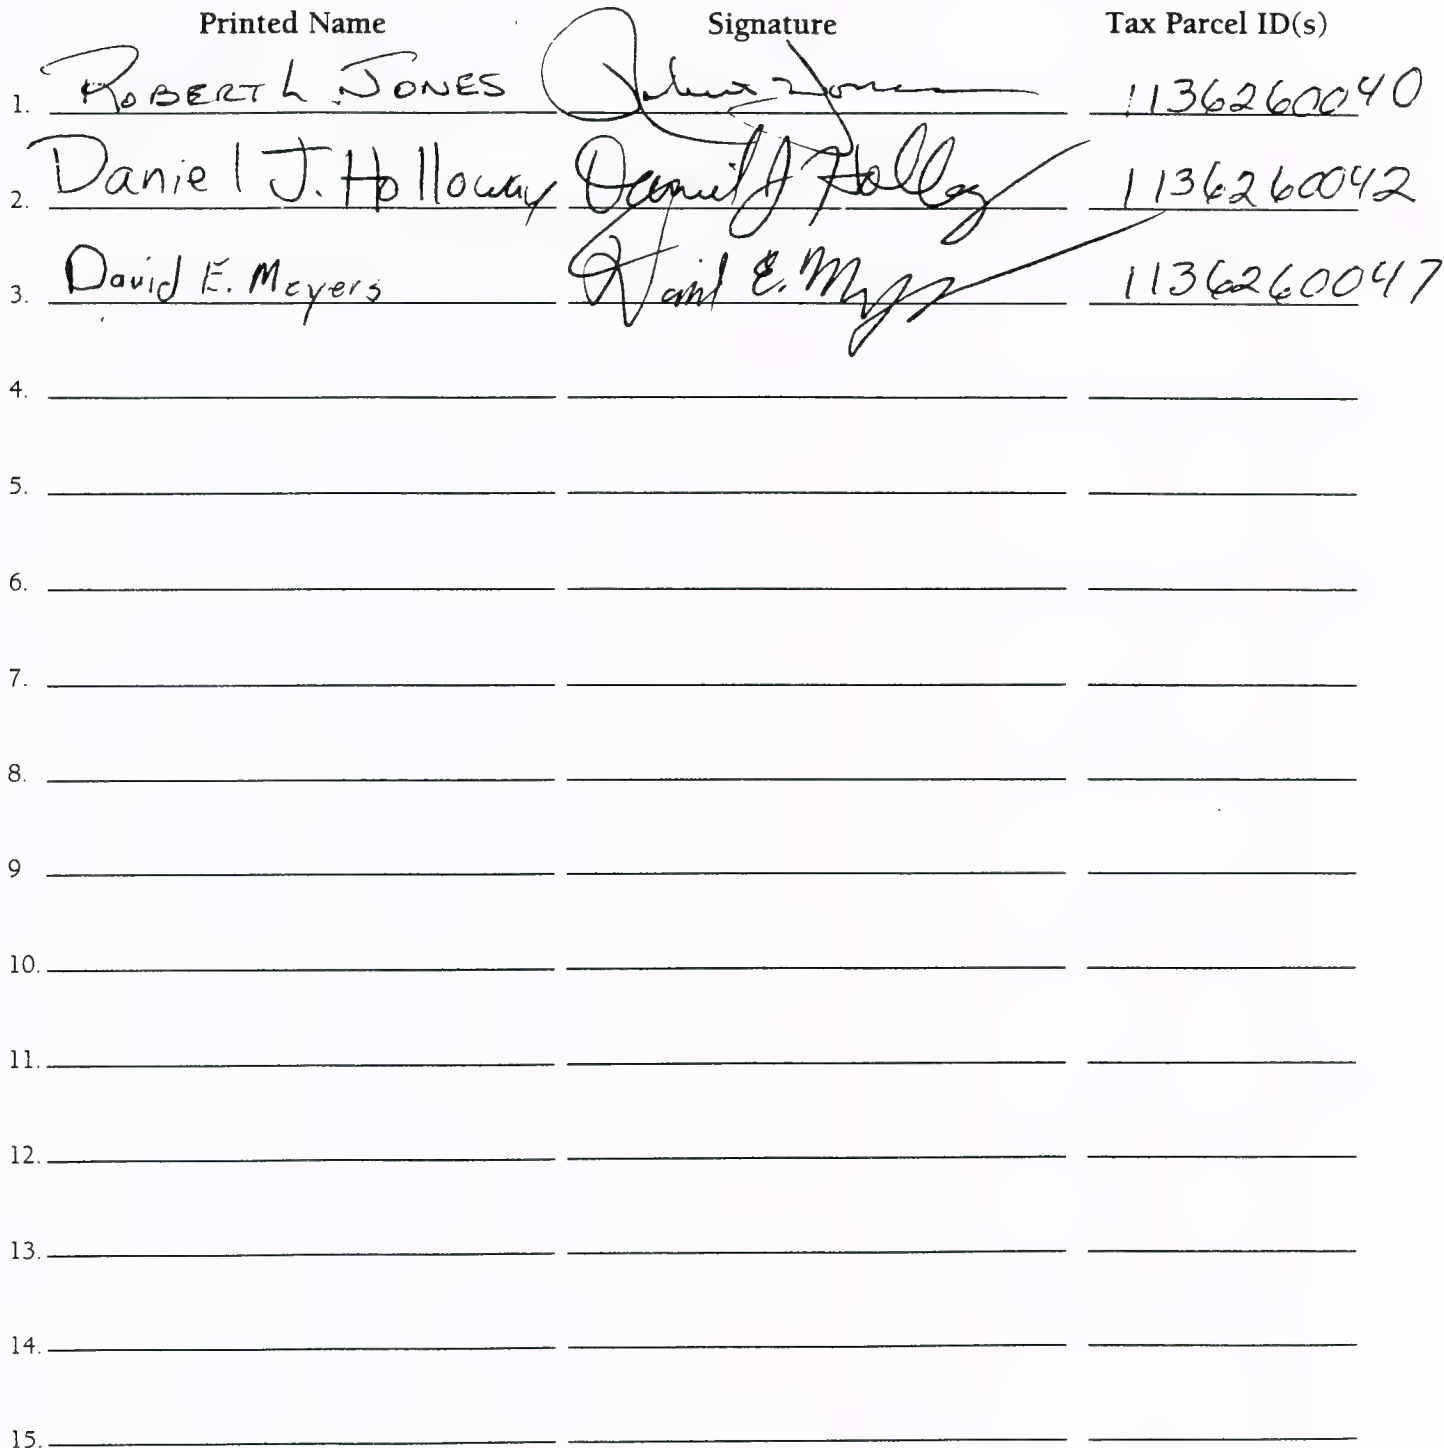 Printed Name Signature Tax Parcel ID(s)
1. ROBERT L. JONES Robert L Jones 1136260040
2. Daniel J. Holloway Daniel J Holloway 1136260042
3. David E. Meyers David E. Meyers 1136260047
4.
5.
6.
7.
8.
9
10.
11.
12.
13.
14.
15.